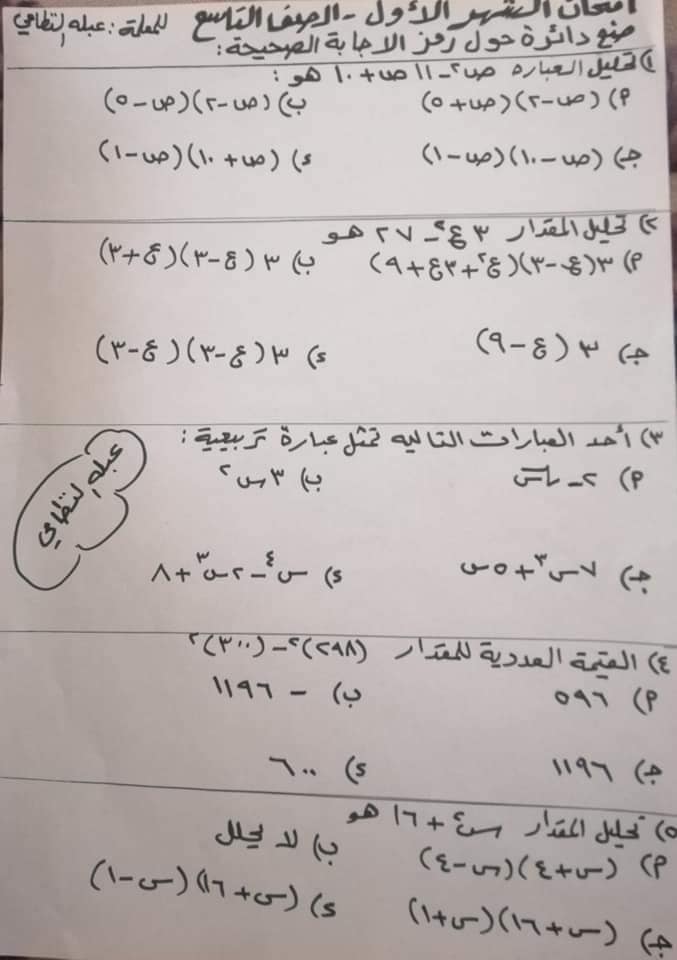 امتحان الشهر الأول - الصف التاسع للمعلمة : عبله النظامي
ضع دائرة حول رمز الاجابة الصحيحة :
١) تحليل العبارة ص٢ - ١١ص + ١٠ هو :
٢) (ص-٢)(ص+٥) ب) (ص-٢)(ص-٥)
ج) (ص-١٠)(ص-١) د) (ص+١٠)(ص-١)
٢) تحليل المقدار ٣ع٢ - ٢٧ هو
٢) ٣(ع-٣)(ع٢+٣ع+٩) ب) ٣(ع-٣)(ع+٣)
ج) ٣(ع-٩) د) ٣(ع-٣)(ع-٣)
٣) أحد العبارات التاليه تمثل عبارة تربيعية :
٢) ٢-√س ب) ٣س٢
ج) ٧س٣+٥س د) س٤-٢س٣+٨
عبله النظامي
٤) القيمة العددية للمقدار (٢٩٨)٢-(٣٠٠)٢
٢) ٥٩٦ ب) - ١١٩٦
ج) ١١٩٦ د) ٦٠٠
٥) تحليل المقدار س٤+١٦ هو
٢) (س+٤)(س-٤) ب) لا يحلل
ج) (س+١٦)(س+١) د) (س+١٦)(س-١)